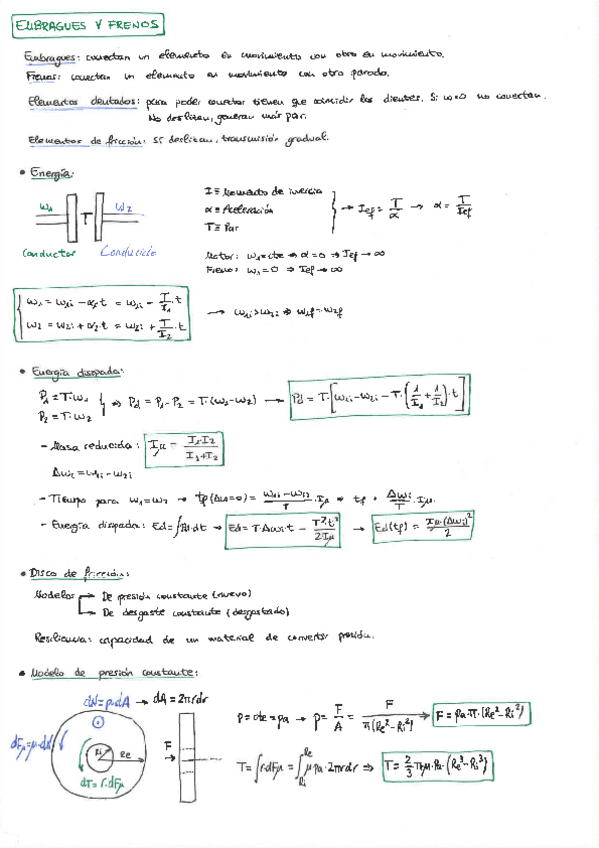 EMBRAGUES Y FRENOS
Embragues: conectan un elemento en movimiento con otro en movimiento.
Frenos: conectan un elemento en movimiento con otro parado.
Elementos dentados: para poder conectar tienen que coincidir los dientes. Si ω≠0 no conectan.
No deslizan, generan más par.
Elementos de fricción: Sí deslizan, transmisión gradual.
• Energía:
ω1 T ω2
Conductor Conducido
I ≡ Momento de inercia
α ≡ Aceleración
T ≡ Par
→ Ief = T/α → α = T/Ief
Motor: ω1 = cte ⇒ α = 0 ⇒ Ief → ∞
Freno: ω1 = 0 ⇒ Ief → ∞
ω1 = ω1i − α1·t = ω1i − T/I1·t
ω2 = ω2i + α2·t = ω2i + T/I2·t
→ ω1i > ω2i ⇒ ω1f = ω2f
• Energía disipada:
P1 = T·ω1
P2 = T·ω2
⇒ Pd = P1 − P2 = T·(ω1 − ω2) → Pd = T·[ω1i − ω2i − T·(1/I1 + 1/I2)·t]
- Masa reducida: Iμ = I1·I2/(I1 + I2)
Δωi = ω1i − ω2i
- Tiempo para ω1 = ω2 → tf (Δω=0) = (ω1i − ω2i)/T · Iμ ⇒ tf = Δωi/T · Iμ
- Energía disipada: Ed = ∫Pd·dt → Ed = T·Δωi·t − T²·t²/2Iμ → Ed(tf) = Iμ·(Δωi)²/2
• Disco de fricción:
Modelos → De presión constante (nuevo)
→ De desgaste constante (desgastado)
Resiliencia: capacidad de un material de convertir presión.
• Modelo de presión constante:
dN = p·dA → dA = 2πrdr
dFμ = μ·dN
Ri
Re
dT = r·dFμ
F
p = cte = pa → p = F/A = F/π(Re² − Ri²) ⇒ F = pa·π·(Re² − Ri²)
T = ∫r·dFμ = ∫Ri Re r·μ·pa·2πrdr ⇒ T = 2/3 π·μ·pa·(Re³ − Ri³)